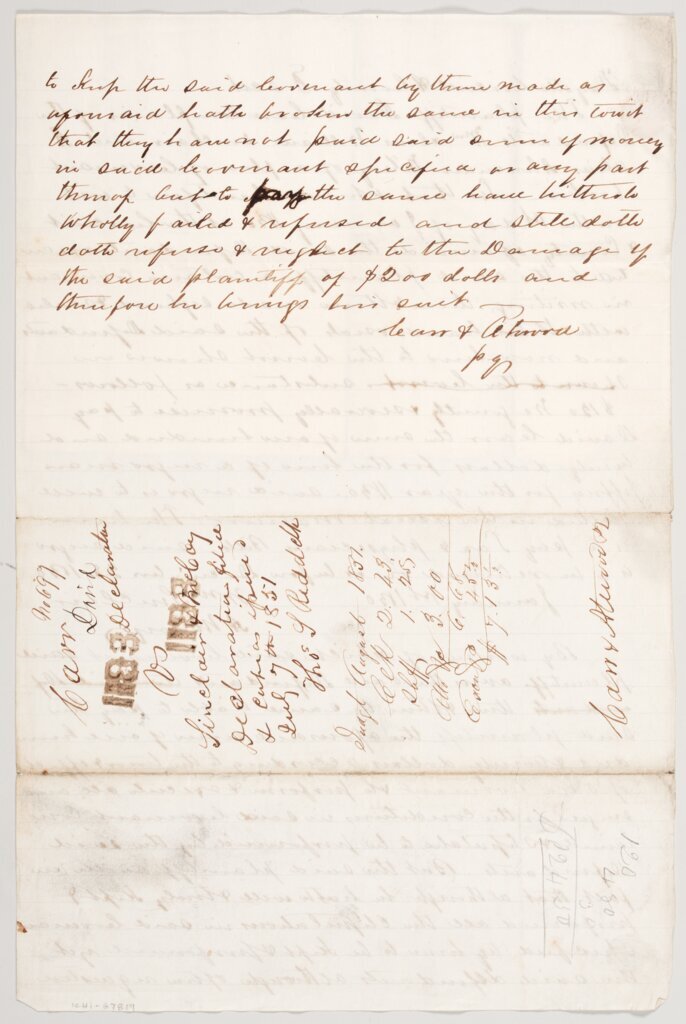 to keep the said Covenant by them made as
aforesaid hath broken the same in this towit
that they have not paid said sum of money
in said Covenant specified or any part
thereof but to pay the same have hitherto
wholly failed & refused and still doth
doth refuse & neglect to the Damage of
the said plaintiff of $200 dolls and
therefore he brings his suit
Carr & Atwood
pq
No 697
Carr David
1133 Declaration
Vs 1133
Sinclair & McCoy
Declaration filed
& capias issued
July 7th 1851
Thos S Reddick
Judgt August 1851.
Clk 2.43.
Shff 1.25
Atty 3.00
6.68
45
$7.13
Carr & Atwood
$224.50
4.50
120